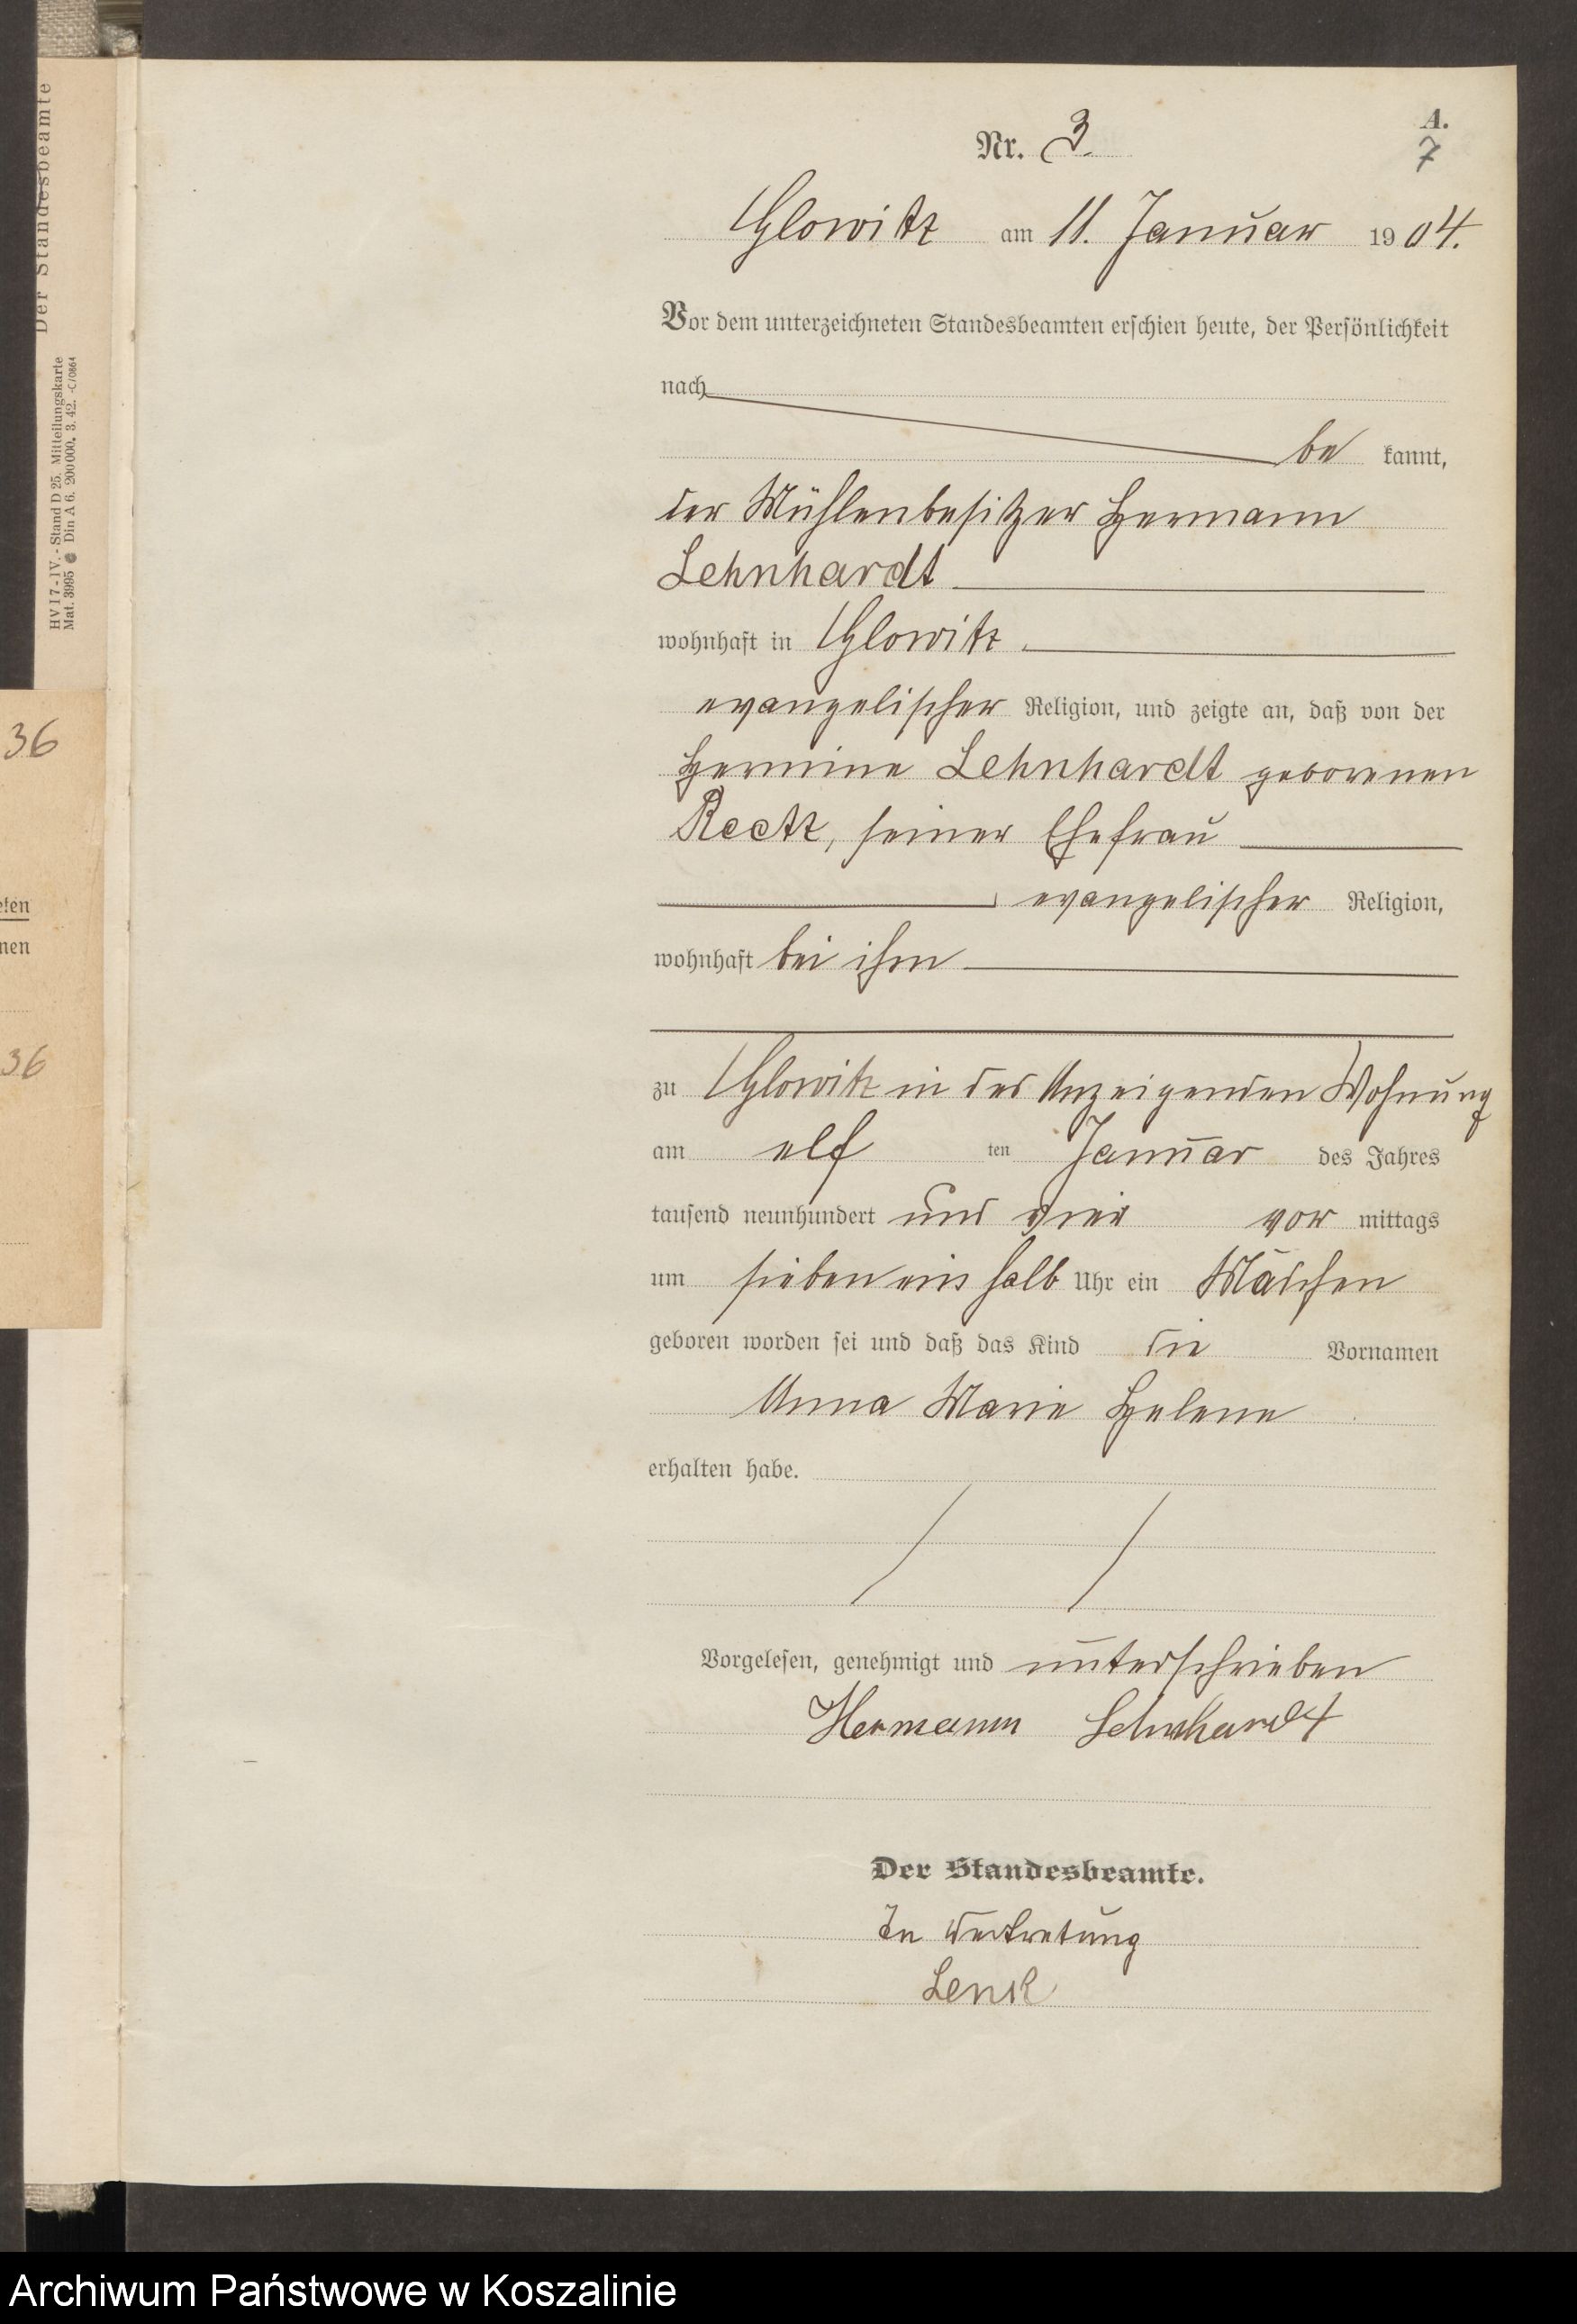 Der Standesbeamte
HV I 7-IV.- Stand D 25. Mitteilungskarte
Mat. 3995 Din A 6. 200 000. 3. 42. -C/0864
36
nen
36
A.
Nr. 3.
7
Glowitz am 11. Januar 1904.
Vor dem unterzeichneten Standesbeamten erschien heute, der Persönlichkeit
nach
be kannt,
der Mühlenbesitzer Hermann
Lehnhardt
wohnhaft in Glowitz
evangelischer Religion, und zeigte an, daß von der
Hermine Lehnhardt geborenen
seiner Ehefrau
evangelischer Religion,
wohnhaft bei ihm
zu Glowitz in des Anzeigenden Wohnung
am elf ten Januar des Jahres
tausend neunhundert und vier vor mittags
um sieben ein halb Uhr ein Mädchen
geboren worden sei und daß das Kind die Vornamen
Anna Marie Helene
erhalten habe.
Vorgelesen, genehmigt und unterschrieben
Hermann Lehnhardt
Der Standesbeamte.
In Vertretung
Lenk
Archiwum Państwowe w Koszalinie